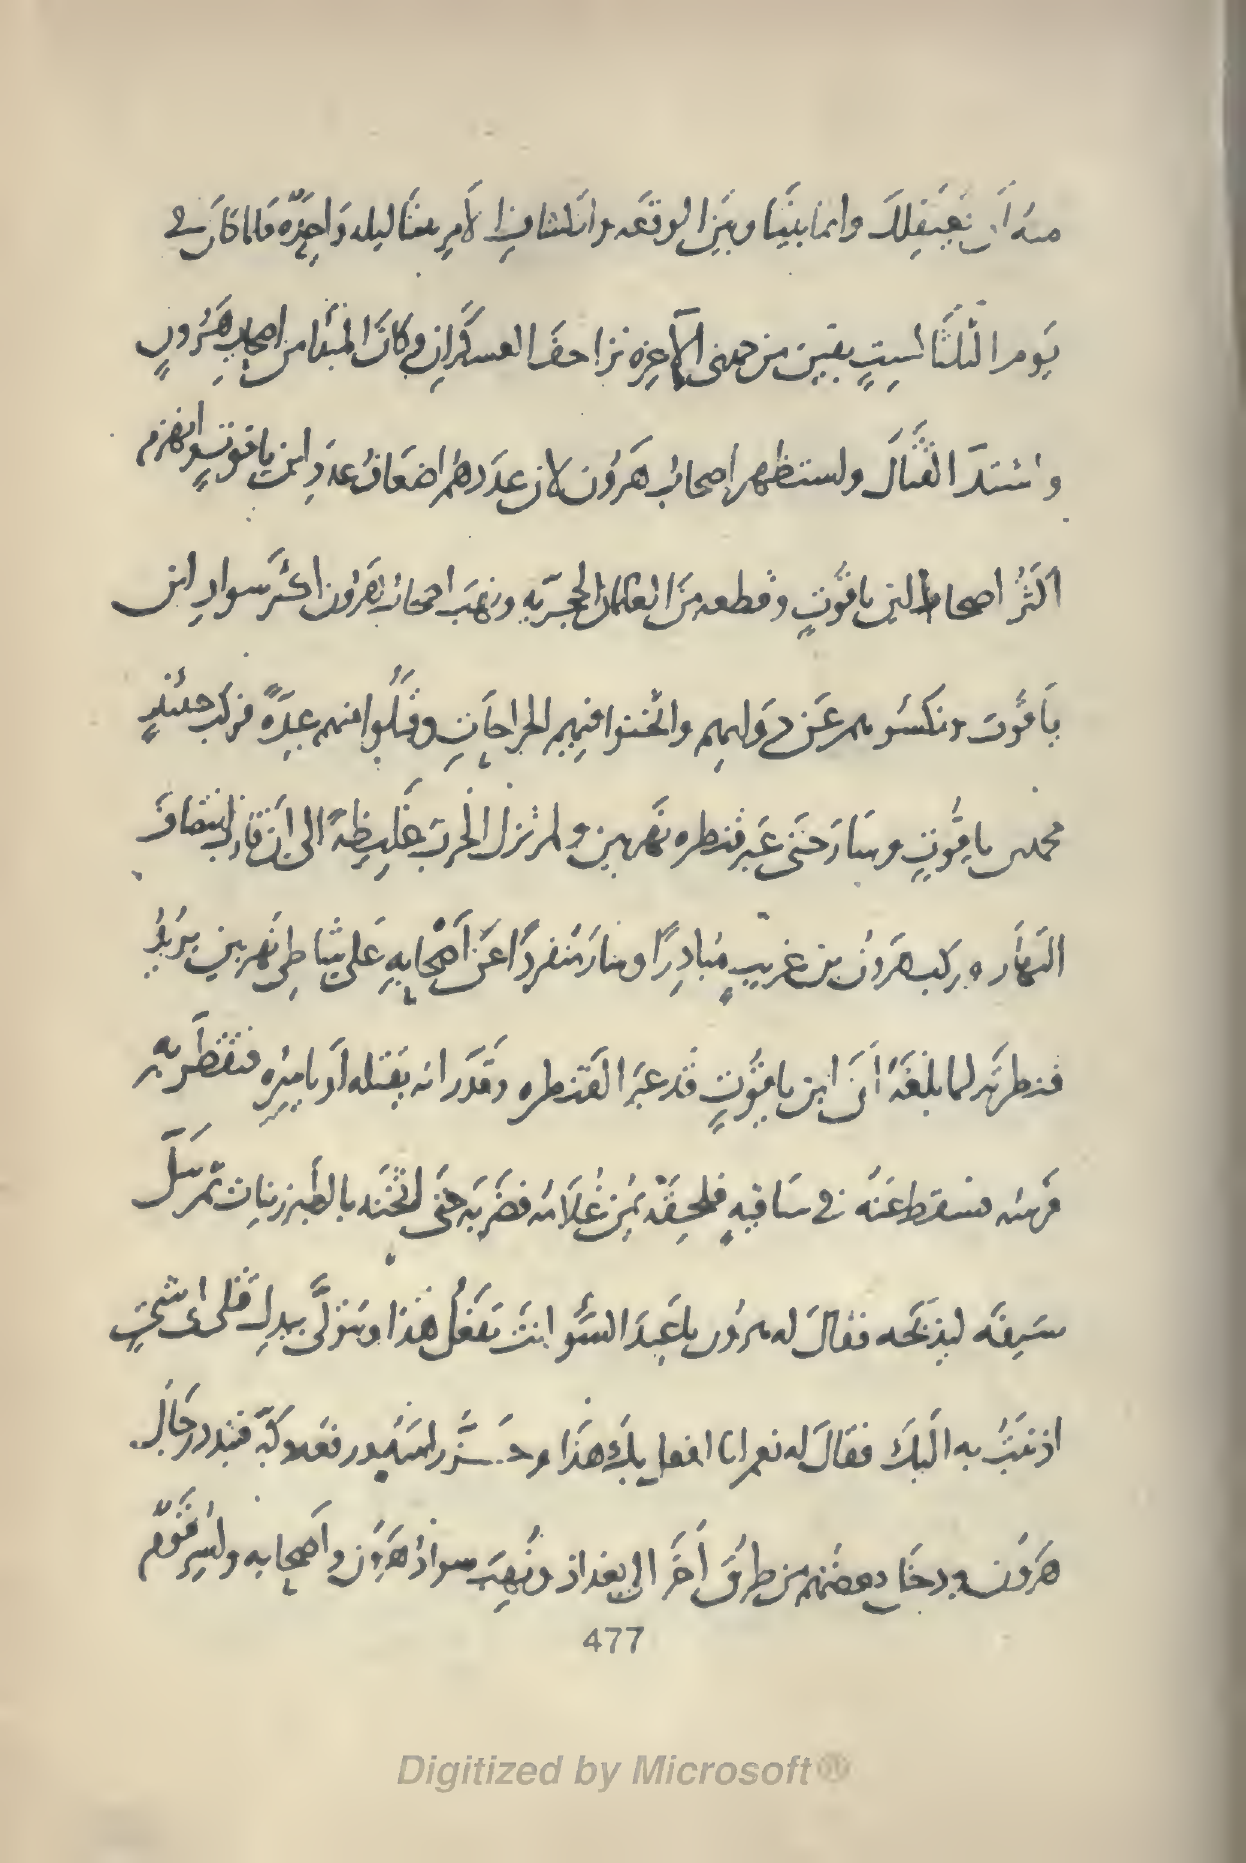 منه أن يعتقلك وانما بيننا وبين الوقعه وانكشاف الامر بيننا ليله واحدة فلما كان في
يوم الثلثا لست بقين من جمدى الاخره تزاحف العسكران وكان المبتدا من اصحاب هرون
واشتد القتال واستظهر اصحاب هرون لان عددهم اضعاف عدد ابن ياقوت وانهزم
اكثر اصحاب ابن ياقوت وقطعه من الغلمان الحجريه ونهب اصحاب هرون اكثر سواد ابن
ياقوت ونكسوهم عن دوابهم واثخنوا فيهم الجراحات وقتلوا منهم عدة فركب حينئذ
محمد بن ياقوت وسار حتى عبر قنطره نهر بين ولم تزل الحرب غليظة الى ان قارب انتصاف
النهار وركب هرون بن غريب مبادرا وسار منفردا عن اصحابه على شاطى نهر بين يريد
قنطرته لما بلغه أن ابن ياقوت قد عبر القنطره وقدر انه يقتله او ياسره فتقطر به
فرسه فسقط عنه في ساقيه فلحقه يمن غلامه فضربه حتى اثخنه بالطبرزينات ثم سل
سيفه ليذبحه فقال له هرون يا عبد السو انت تفعل هذا وتتولى بيدك قتلى اى شي
اذنبت به اليك فقال له نعم انا افعل بك هذا وحز راسه ورفعه وكبر فتبدد رجال
هرون ودخل بعضهم من طرق أخر الى بغداذ ونهب سواد هرون واصحابه واسر قوم
477
Digitized by Microsoft®